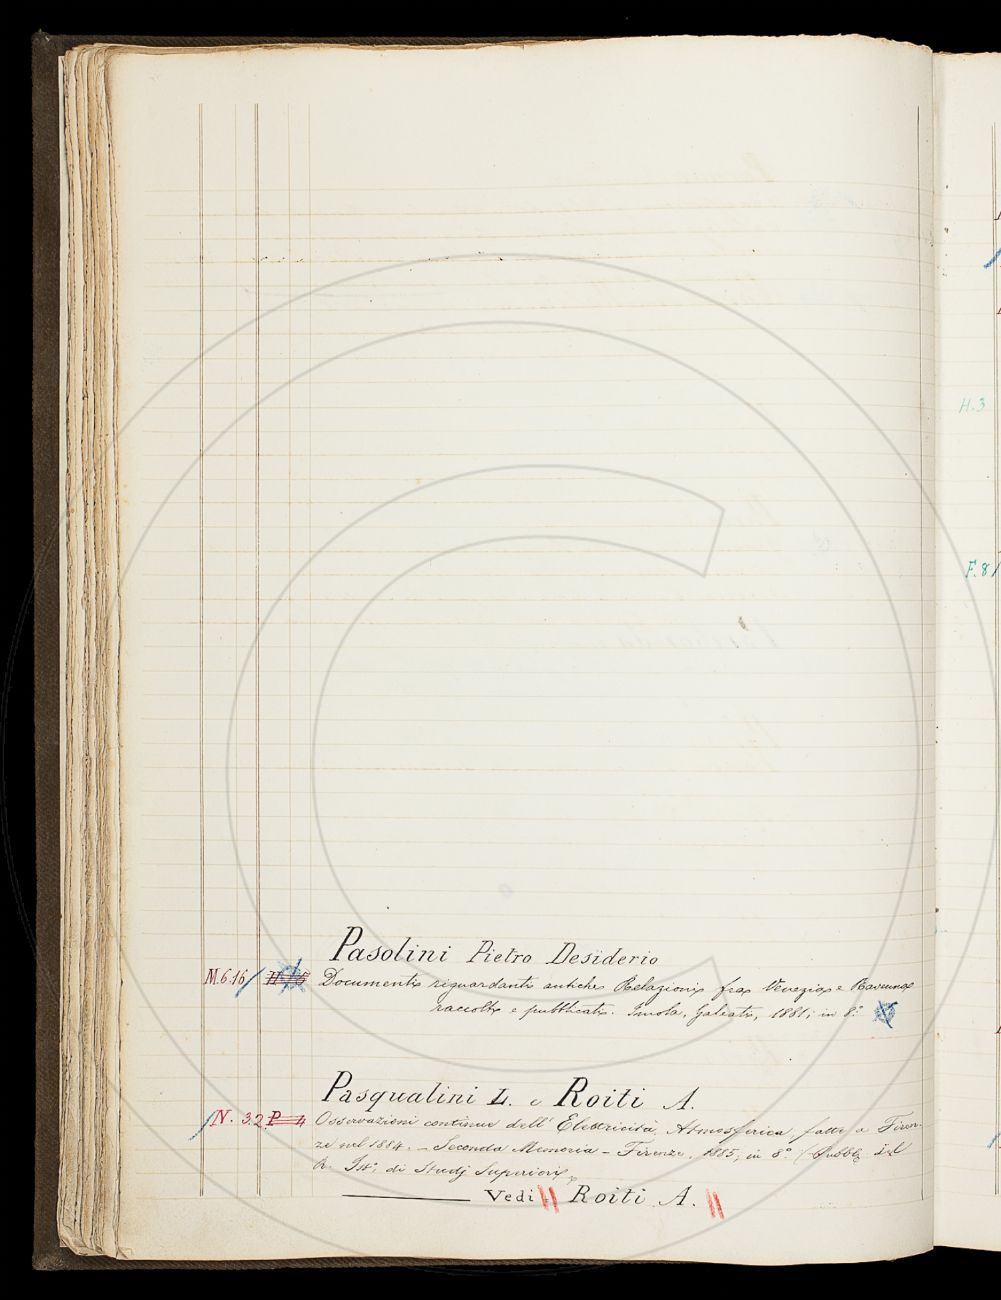 Pasolini Pietro Desiderio
M.6.16 Documenti riguardanti antiche Relazioni fra Venezia e Ravenna
raccolti e pubblicati. Imola, Galeati, 1881; in 8.°
Pasqualini L. e Roiti A.
N. 3.2. P 4 Osservazioni continue dell' Elettricità Atmosferica fatte a Firen-
ze nel 1884. - Seconda Memoria - Firenze, 1885; in 8.° (Pubbl. del
R. Ist.° di Studj Superiori
Vedi Roiti A.
H.3
F.8